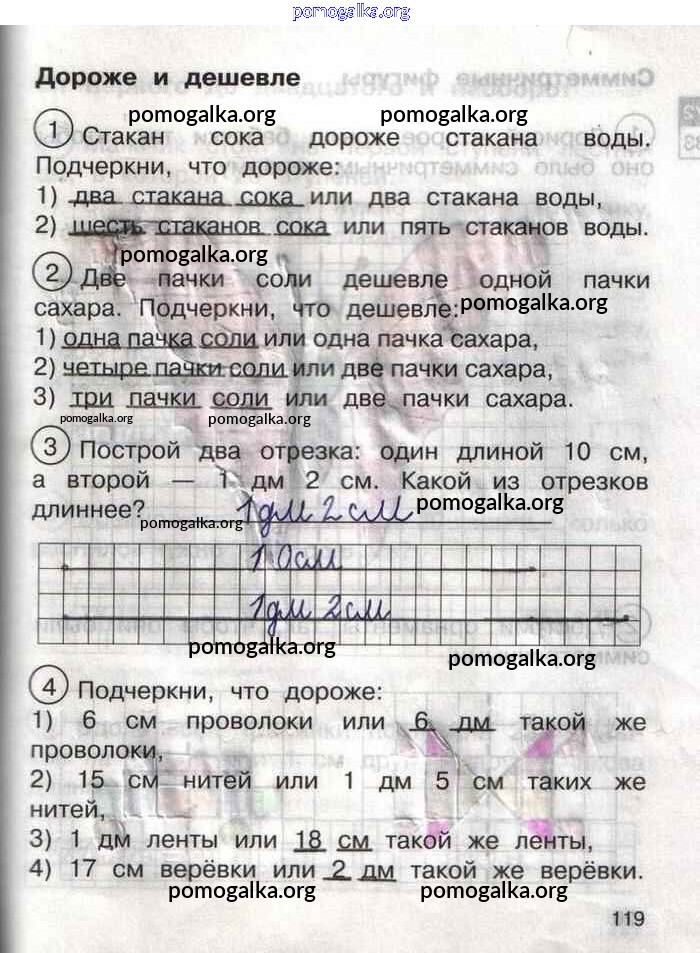 pomogalka.org
Дороже и дешевле
Симметричные фигуры
pomogalka.org pomogalka.org
1 Стакан сока дороже стакана воды.
Подчеркни, что дороже:
1) два стакана сока или два стакана воды,
2) шесть стаканов сока или пять стаканов воды.
pomogalka.org
2 Две пачки соли дешевле одной пачки
сахара. Подчеркни, что дешевле:
pomogalka.org
1) одна пачка соли или одна пачка сахара,
2) четыре пачки соли или две пачки сахара,
3) три пачки соли или две пачки сахара.
pomogalka.org pomogalka.org
3 Построй два отрезка: один длиной 10 см,
а второй — 1 дм 2 см. Какой из отрезков
длиннее? 1 дм 2 см
pomogalka.org pomogalka.org
10 см
1 дм 2 см
pomogalka.org pomogalka.org
4 Подчеркни, что дороже:
1) 6 см проволоки или 6 дм такой же
проволоки,
2) 15 см нитей или 1 дм 5 см таких же
нитей,
3) 1 дм ленты или 18 см такой же ленты,
4) 17 см верёвки или 2 дм такой же верёвки.
pomogalka.org pomogalka.org
119